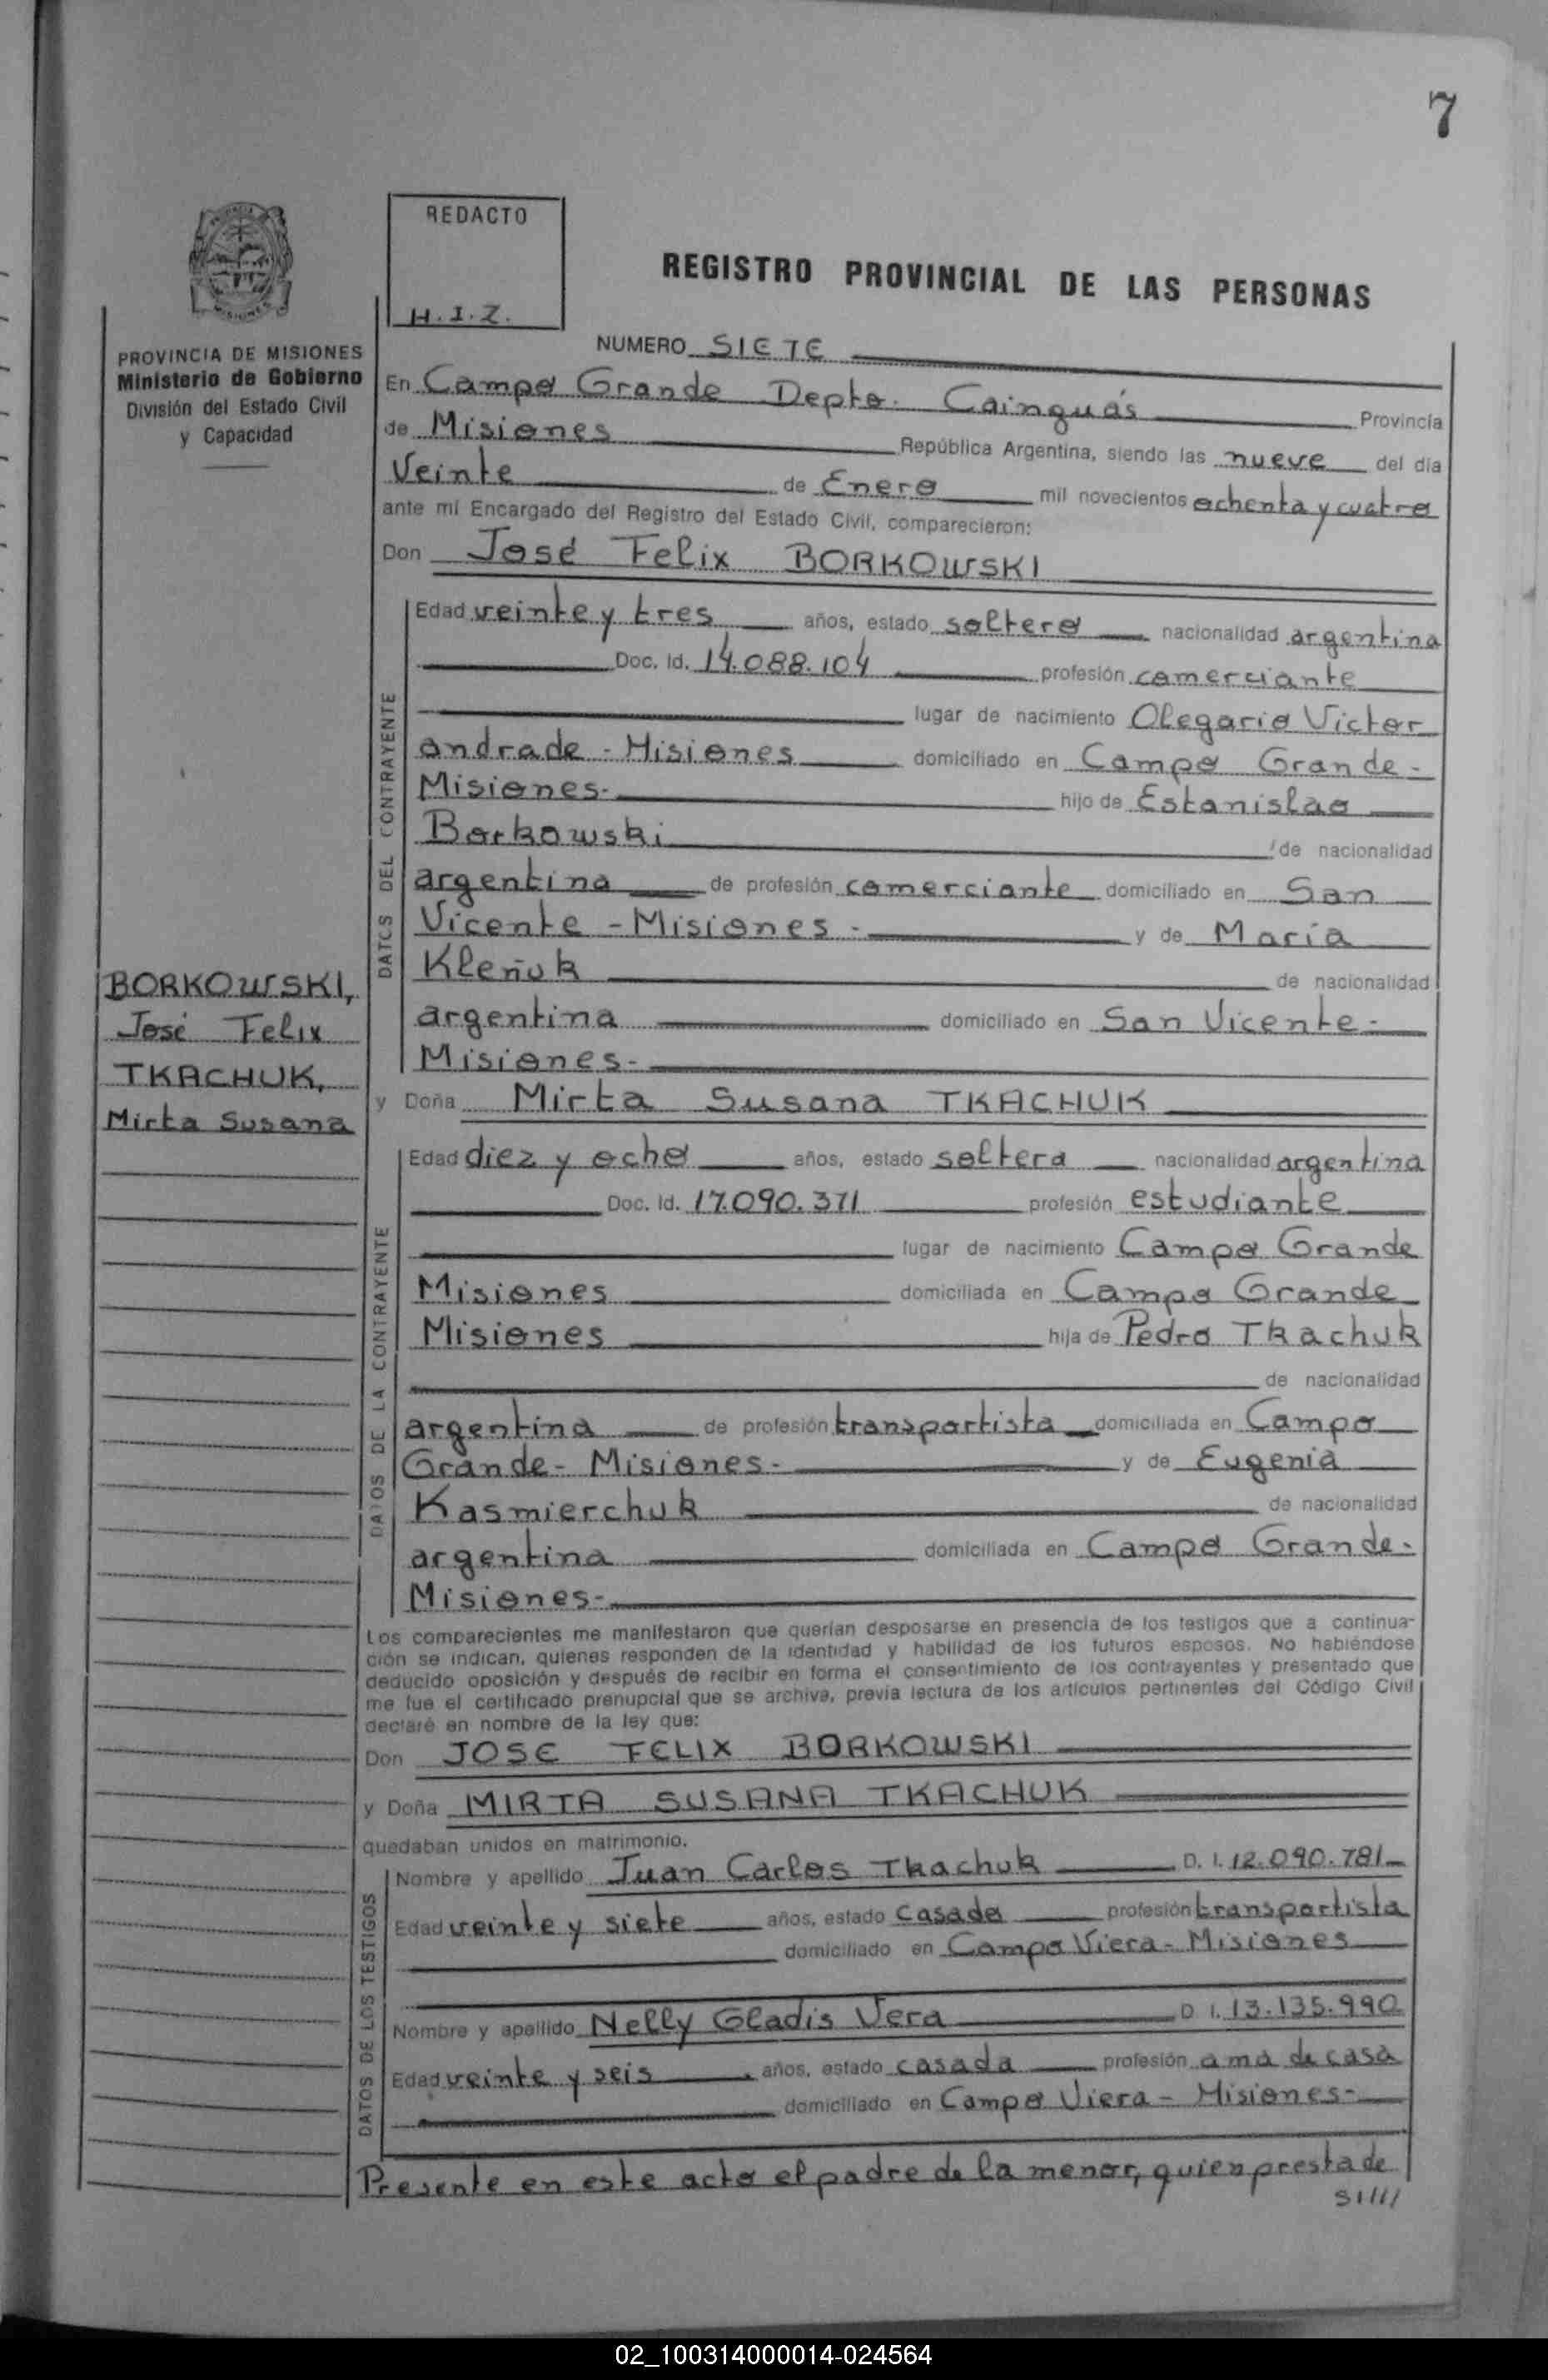 7
REDACTO
H. I. Z.
REGISTRO PROVINCIAL DE LAS PERSONAS
PROVINCIA DE MISIONES
Ministerio de Gobierno
División del Estado Civil
y Capacidad
NUMERO SIETE
En Campo Grande Depto. Cainguás Provincia
de Misiones República Argentina, siendo las nueve del día
Veinte de Enero mil novecientos ochenta y cuatro
ante mí Encargado del Registro del Estado Civil, comparecieron:
Don José Felix BORKOWSKI
DATOS DEL CONTRAYENTE
Edad veinte y tres años, estado soltero nacionalidad argentina
Doc. Id. 14.088.104 profesión comerciante
lugar de nacimiento Olegario Victor
andrade - Misiones domiciliado en Campo Grande -
Misiones.- hijo de Estanislao
Borkowski de nacionalidad
argentina de profesión comerciante domiciliado en San
Vicente - Misiones - y de María
Kleñuk de nacionalidad
argentina domiciliado en San Vicente -
Misiones-
BORKOWSKI,
José Felix
TKACHUK,
Mirta Susana
y Doña Mirta Susana TKACHUK
DATOS DE LA CONTRAYENTE
Edad diez y ocho años, estado soltera nacionalidad argentina
Doc. Id. 17.090.371 profesión estudiante
lugar de nacimiento Campo Grande
Misiones domiciliada en Campo Grande
Misiones hija de Pedro Tkachuk
de nacionalidad
argentina de profesión transportista domiciliada en Campo
Grande - Misiones - y de Eugenia
Kasmierchuk de nacionalidad
argentina domiciliada en Campo Grande -
Misiones-
Los comparecientes me manifestaron que querían desposarse en presencia de los testigos que a continua-
ción se indican, quienes responden de la identidad y habilidad de los futuros esposos. No habiéndose
deducido oposición y después de recibir en forma el consentimiento de los contrayentes y presentado que
me fue el certificado prenupcial que se archiva, previa lectura de los artículos pertinentes del Código Civil
declaré en nombre de la ley que:
Don JOSE FELIX BORKOWSKI
y Doña MIRTA SUSANA TKACHUK
quedaban unidos en matrimonio.
DATOS DE LOS TESTIGOS
Nombre y apellido Juan Carlos Tkachuk D. I. 12.090.781-
Edad veinte y siete años, estado casado profesión transportista
domiciliado en Campo Viera - Misiones
Nombre y apellido Nelly Gladis Vera D. I. 13.135.990
Edad veinte y seis años, estado casada profesión ama de casa
domiciliado en Campo Viera - Misiones-
Presente en este acto el padre de la menor, quien presta de
si////
02_100314000014-024564